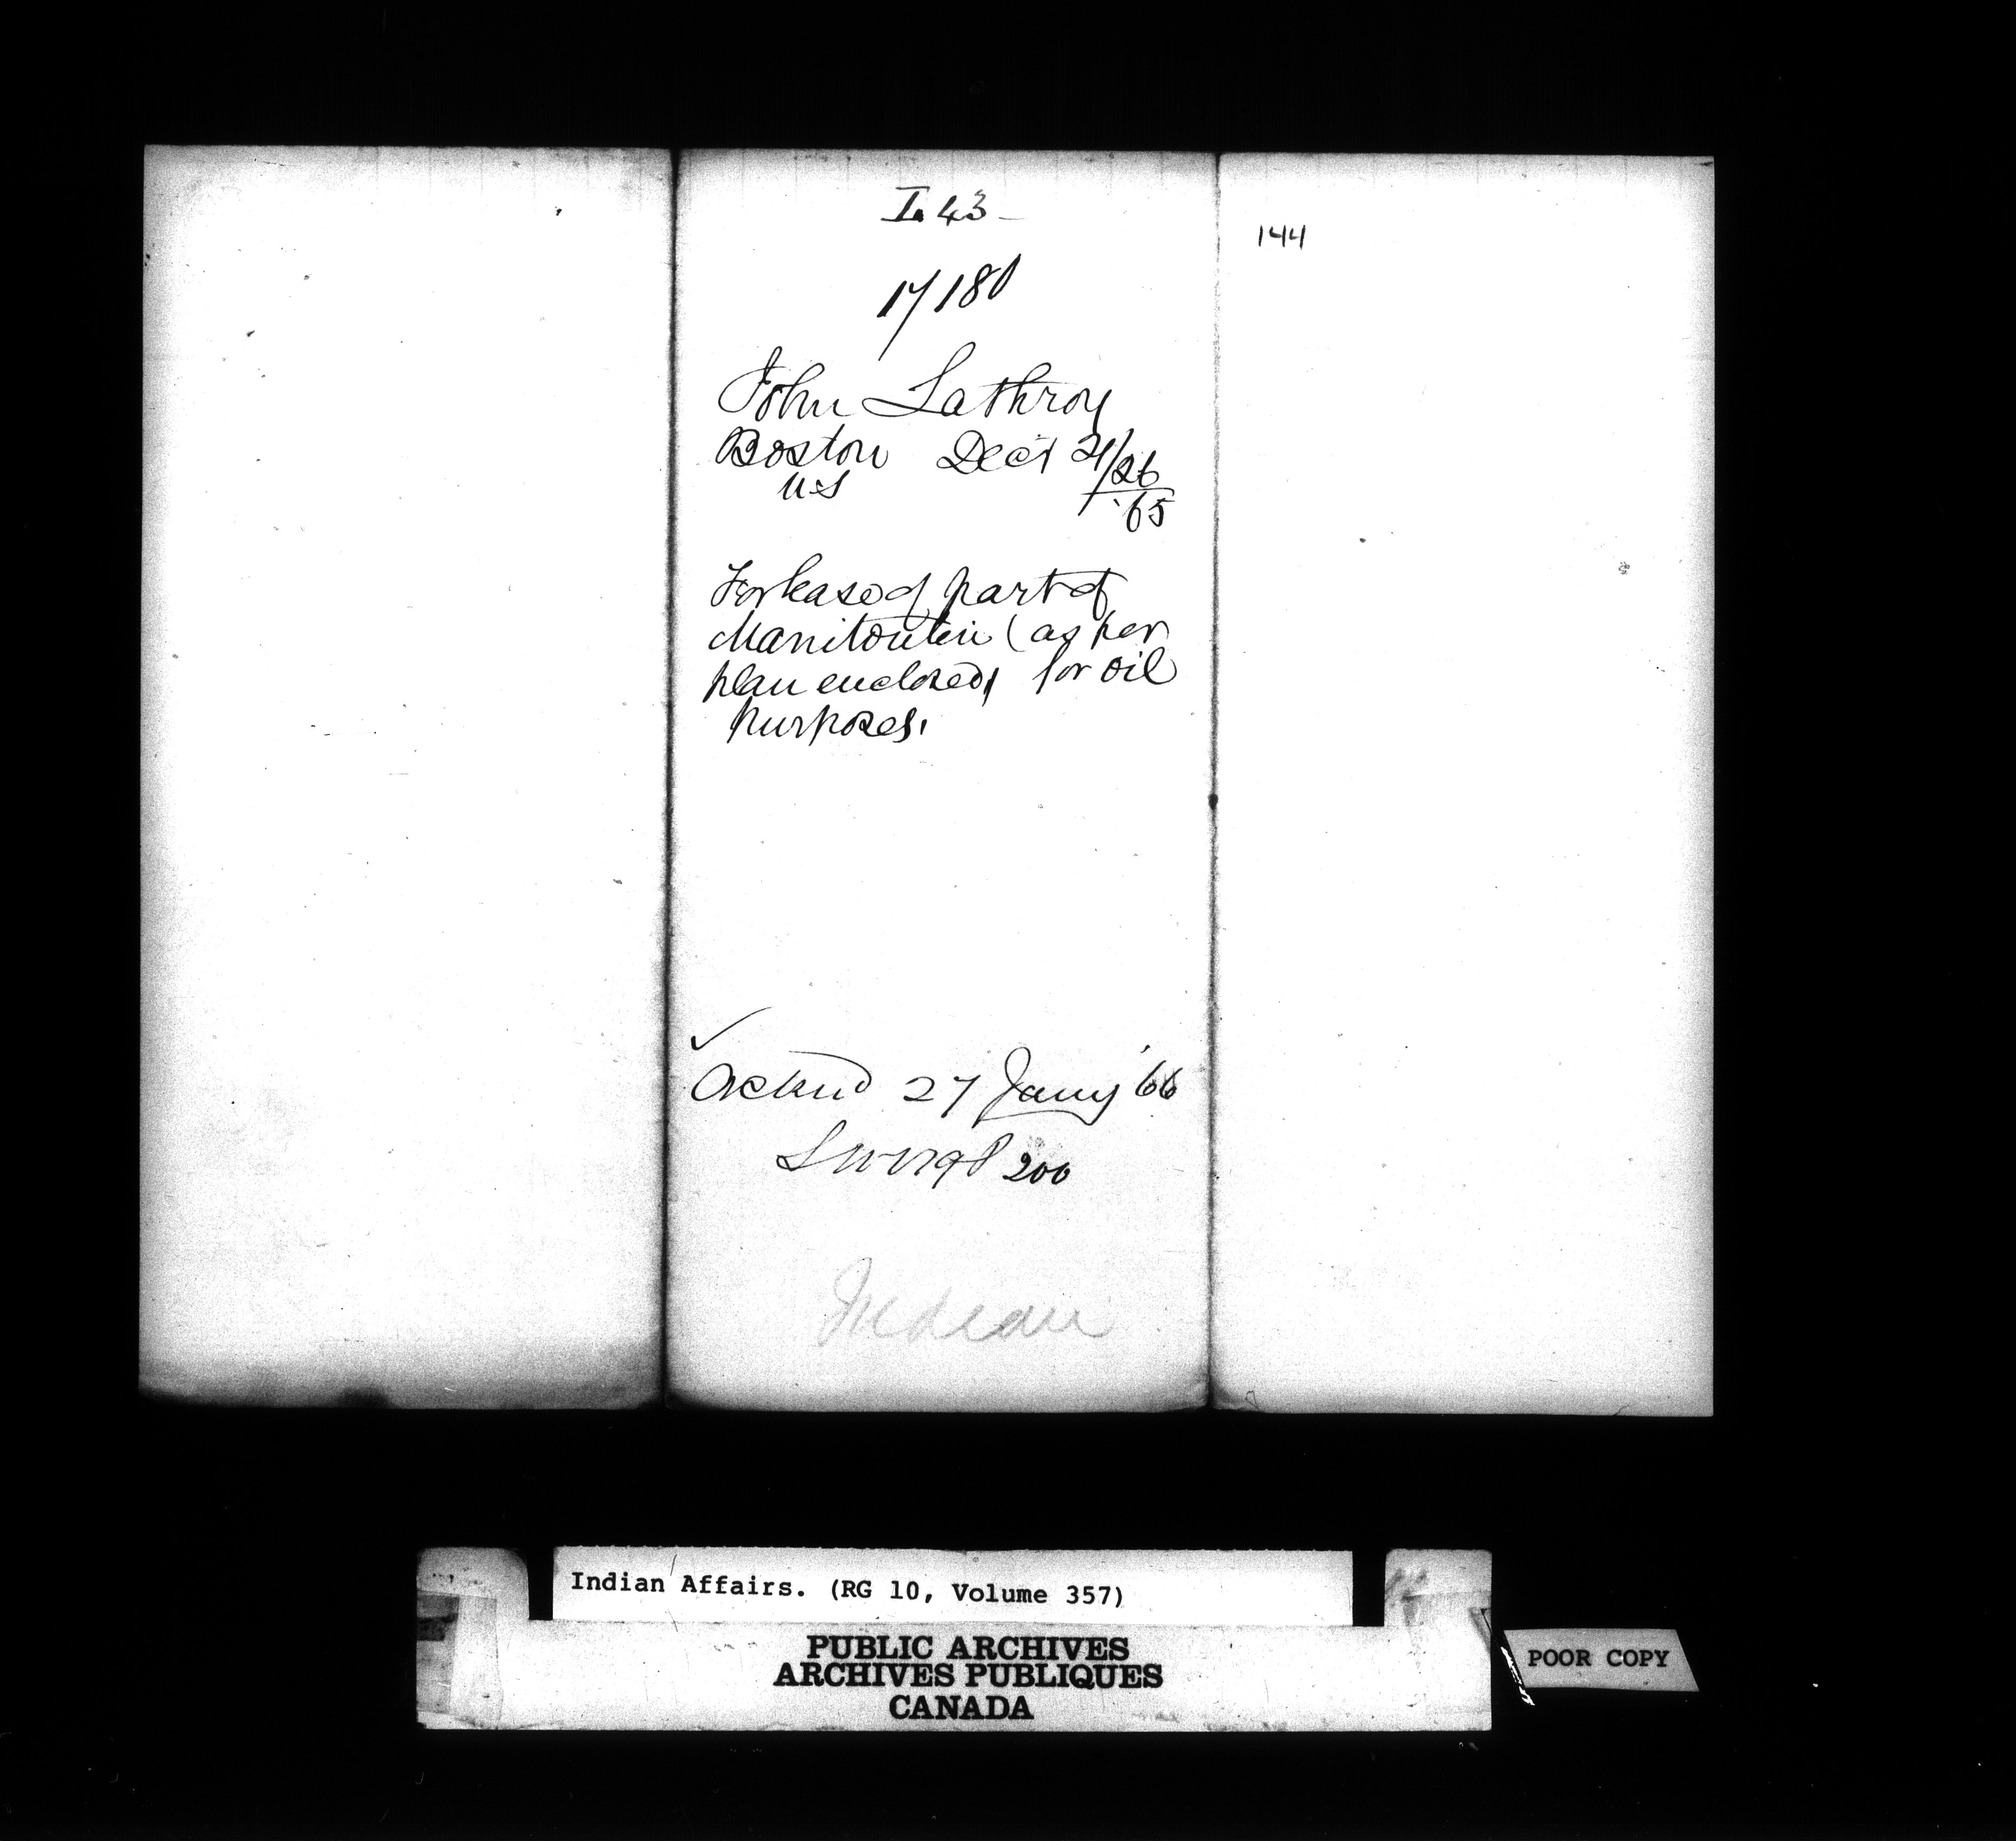 I. 43
17180
John Lathrop
Boston Decr 21/26
U.S '65
For lease of part of
Manitoulin (as per
plan enclosed) for oil
purposes.
Ackd 27 Jany '66
200
Indian
144
Indian Affairs. (RG 10, Volume 357)
PUBLIC ARCHIVES
ARCHIVES PUBLIQUES
CANADA
POOR COPY